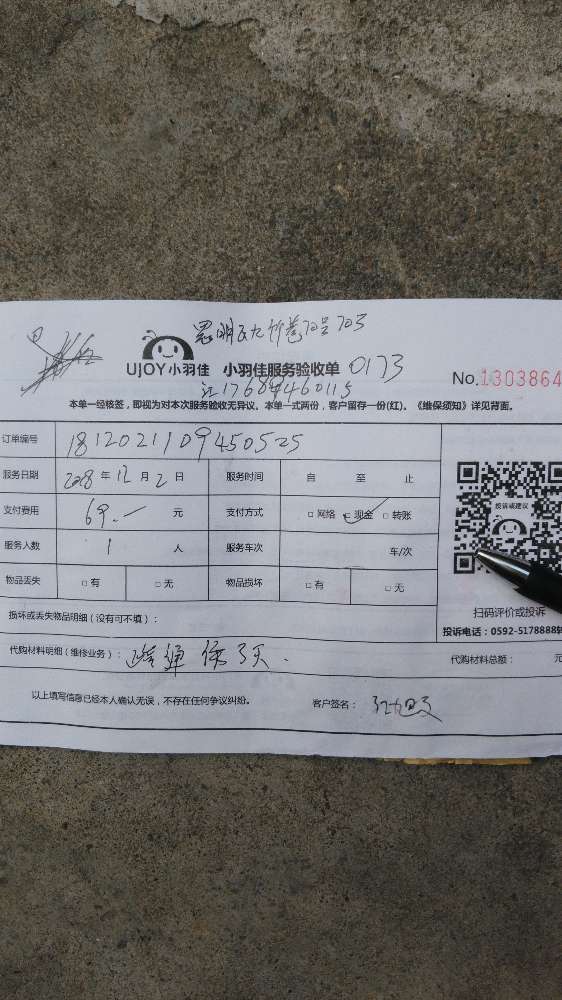 思明区九竹巷70号703
UJOY小羽佳 小羽佳服务验收单 0173
No.1303864
江17689460115
本单一经核签，即视为对本次服务验收无异议。本单一式两份，客户留存一份(红)。《维保须知》详见背面。
订单编号 1812021109450525
服务日期 2018年12月2日 服务时间 自 至 止
支付费用 69.- 元 支付方式 □网络 □现金 □转账
服务人数 1 人 服务车次 车/次
物品丢失 □有 □无 物品损坏 □有 □无
投诉或建议
扫码评价或投诉
投诉电话：0592-5178888转
损坏或丢失物品明细（没有可不填）：
代购材料明细（维修业务）： 通 保 3天. 代购材料总额： 元
以上填写信息已经本人确认无误，不存在任何争议纠纷。 客户签名：